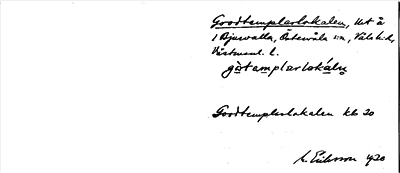 Goodtemplarlokalen, Ut å
i Bjurvalla, Östervåla sn, Våla hd,
Västmanl. l.
gòtämplarlokáln
Goodtemplarlokalen kb 20
Eriksson 1920